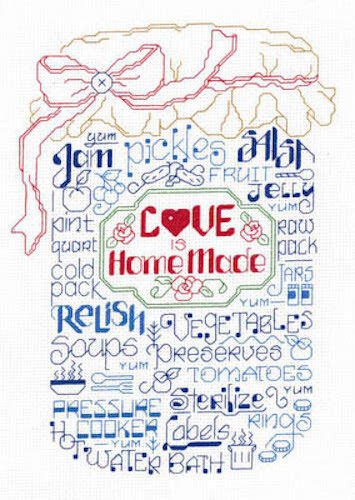 yum
Jam pickles SALSA
FRUIT
JELLY
I
YUM
pint
quart
cold
pack
LOVE
is
HomeMade
raw
pack
JARS
YUM
RELISH
VEGETABLES
Soups
Preserves
YUM
TOMATOES
YUM
PRESSURE
COOKER
Sterilize
Labels
RINGS
HOT
YUM
WATER BATH